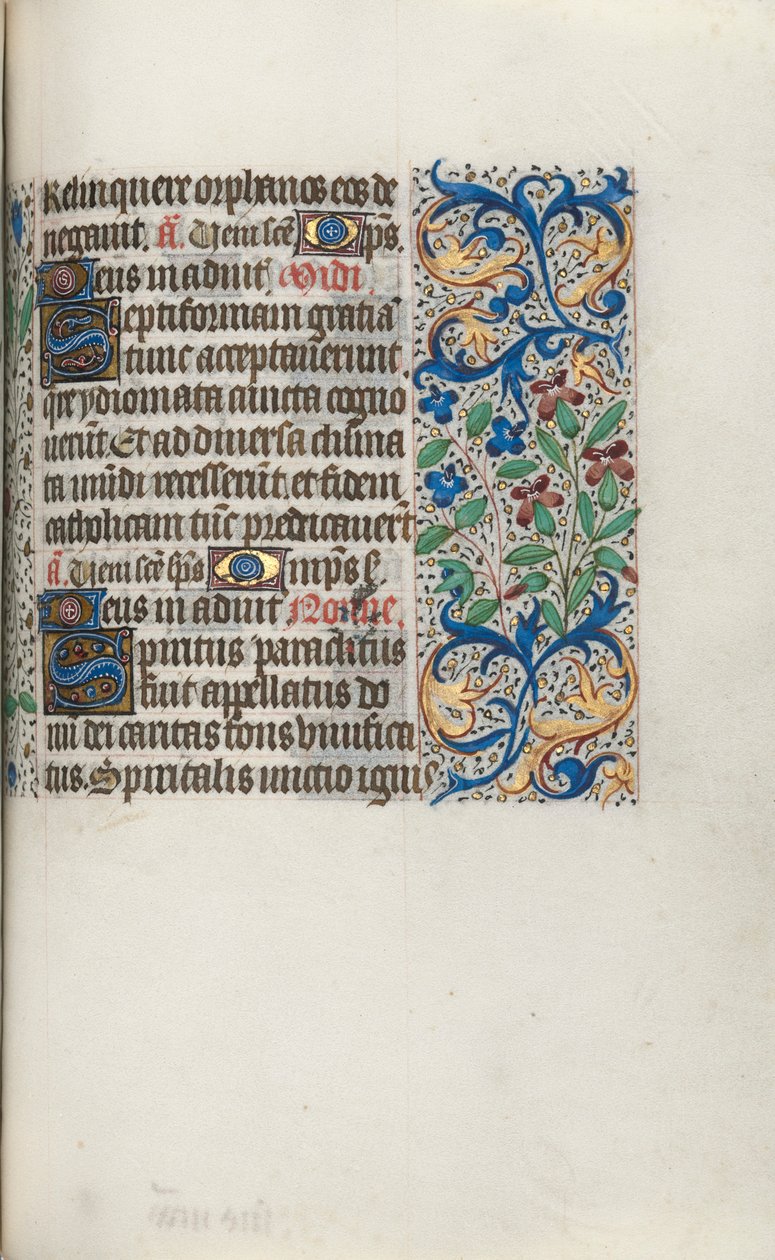 Relinquere orphanos eos de
negauit. A᷃. Ueni sc̃e ps̃.
Deus in adiuit̃ Midi.
Septiformam gratiã
tunc acceptauerunt
que ydiomata cuncta cogno
uerũt. Et ad diuersa clumina
ta mũdi recesserũt. et fidem
catholicam tũc predicauert̃
ã. Ueni sc̃e sp̃s imp̃s e.
Deus in adiuit Nonne.
Spiritus paraclitus
fuit appellatus do
nũ dei caritas fons viuifica
tus. Spiritalis unctio ignis